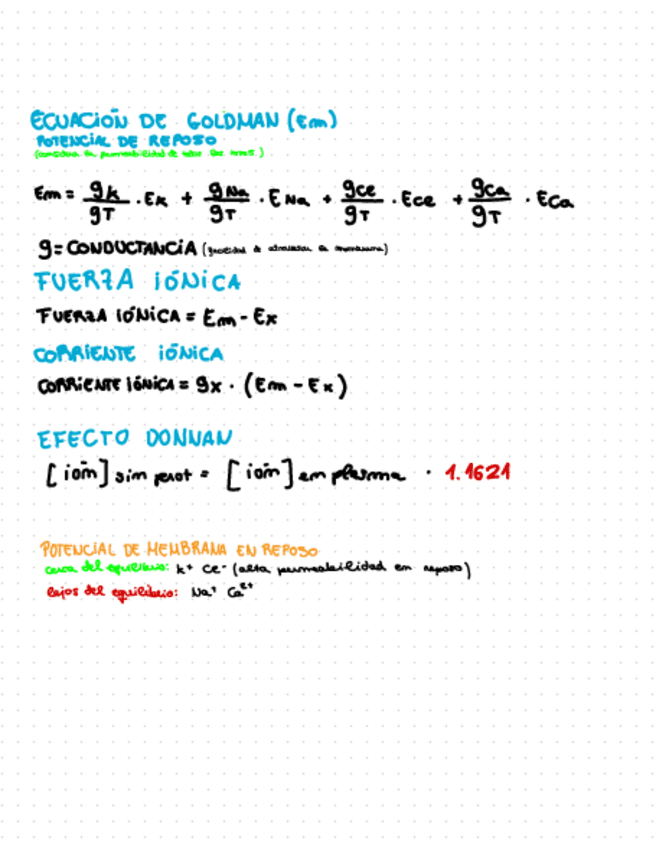 ECUACIÓN DE GOLDMAN (Em)
POTENCIAL DE REPOSO
(considera la permeabilidad de todos los iones)
Em = gK/gT · EK + gNa/gT · ENa + gCl/gT · ECl + gCa/gT · ECa
g = CONDUCTANCIA (facilidad de atravesar la membrana)
FUERZA IÓNICA
FUERZA IÓNICA = Em - Ex
CORRIENTE IÓNICA
CORRIENTE IÓNICA = gx · (Em - Ex)
EFECTO DONNAN
[ión] sin prot = [ión] en plasma · 1.1621
POTENCIAL DE MEMBRANA EN REPOSO
cerca del equilibrio: K+ Cl- (alta permeabilidad en reposo)
lejos del equilibrio: Na+ Ca2+